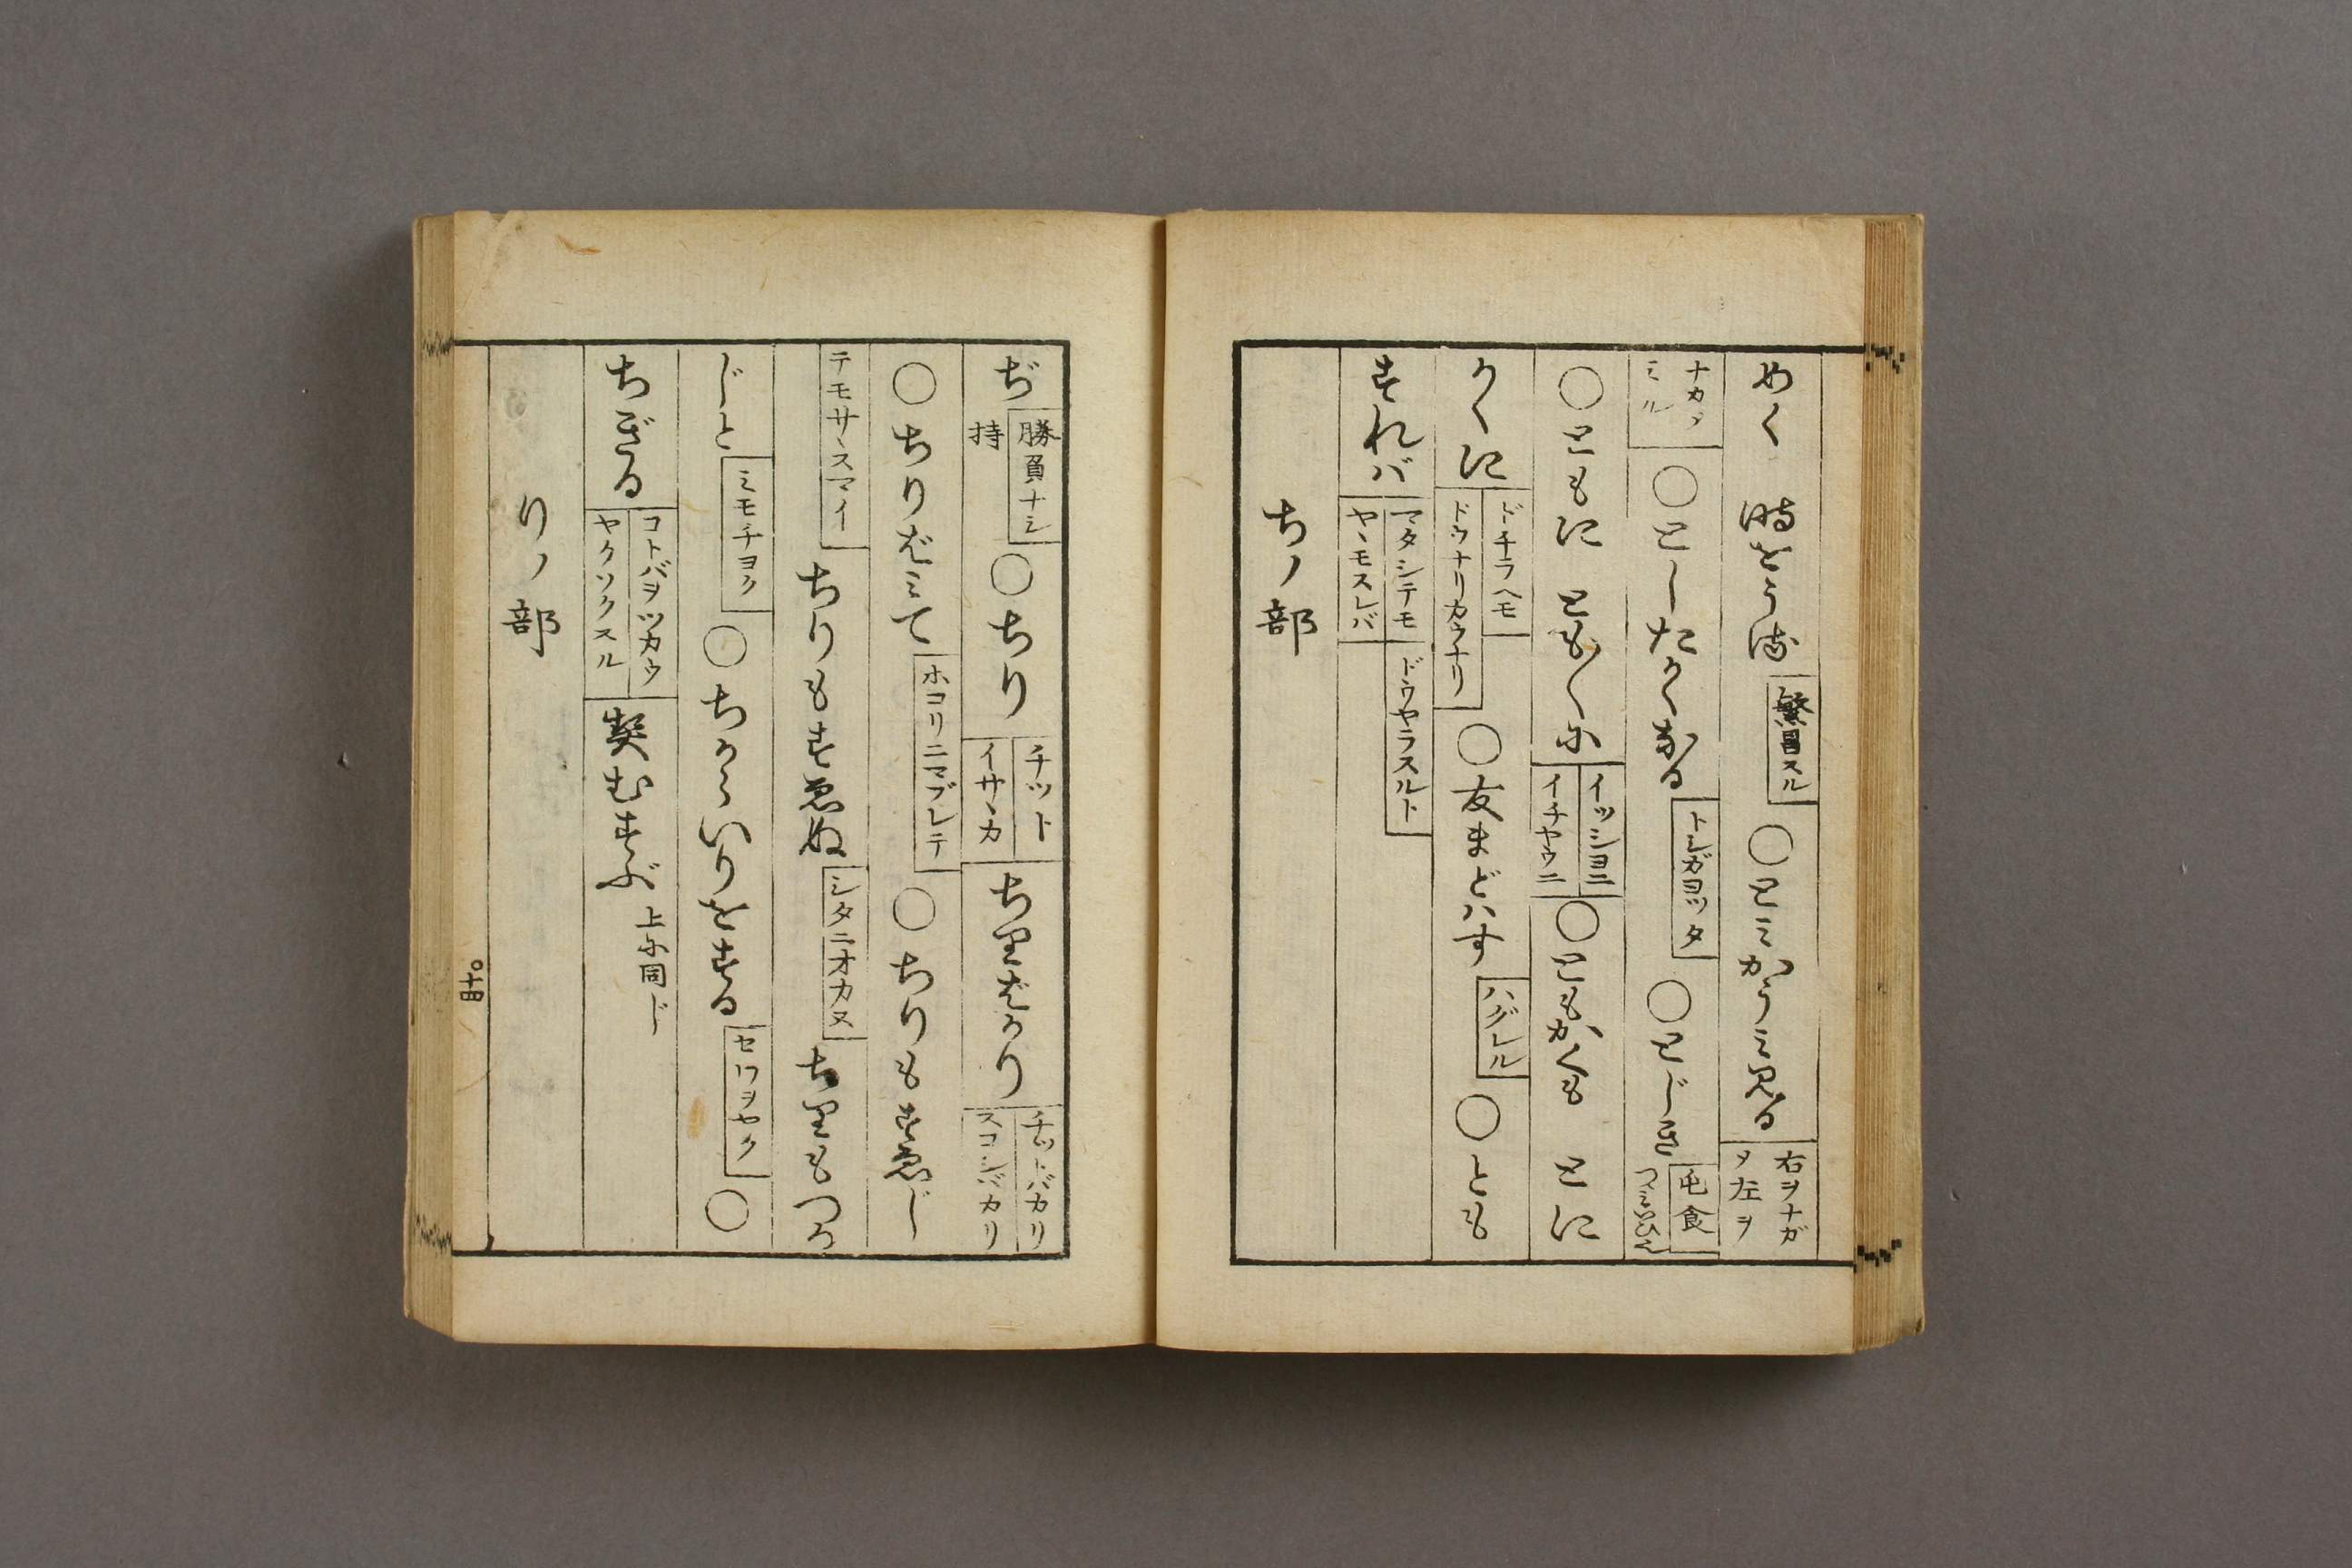 めく 時をうる 繁昌スル ○とみかうミ見る 右ヲナガメ左ヲ
ナカヾミル ○としたかくなる トシガヨツタ ○とじき 屯食 つゝみいひ
○ともに ともゞに イツシヨニ イチヤウニ ○ともかくも とに
かくに ドチラヘモ ドウナリカウナリ ○友まどハす ハグレル ○とも
すれバ マタシテモ ヤヽモスレバ ドウヤラスルト
ちノ部
ぢ 勝負ナシ 持 ○ちり チツト イサヽカ ちりばかり チツトバカリ スコシバカリ
○ちりばミて ホコリニマブレテ ○ちりもすゑじ
テモサヽスマイ ちりもすゑぬ シタニオカヌ ちりもつか
じと ミモチヨク ○ちからいりをする セワヲヤク ○
ちぎる コトバヲツカウ ヤクソクスル 契むすぶ 上に同じ
りノ部
十四